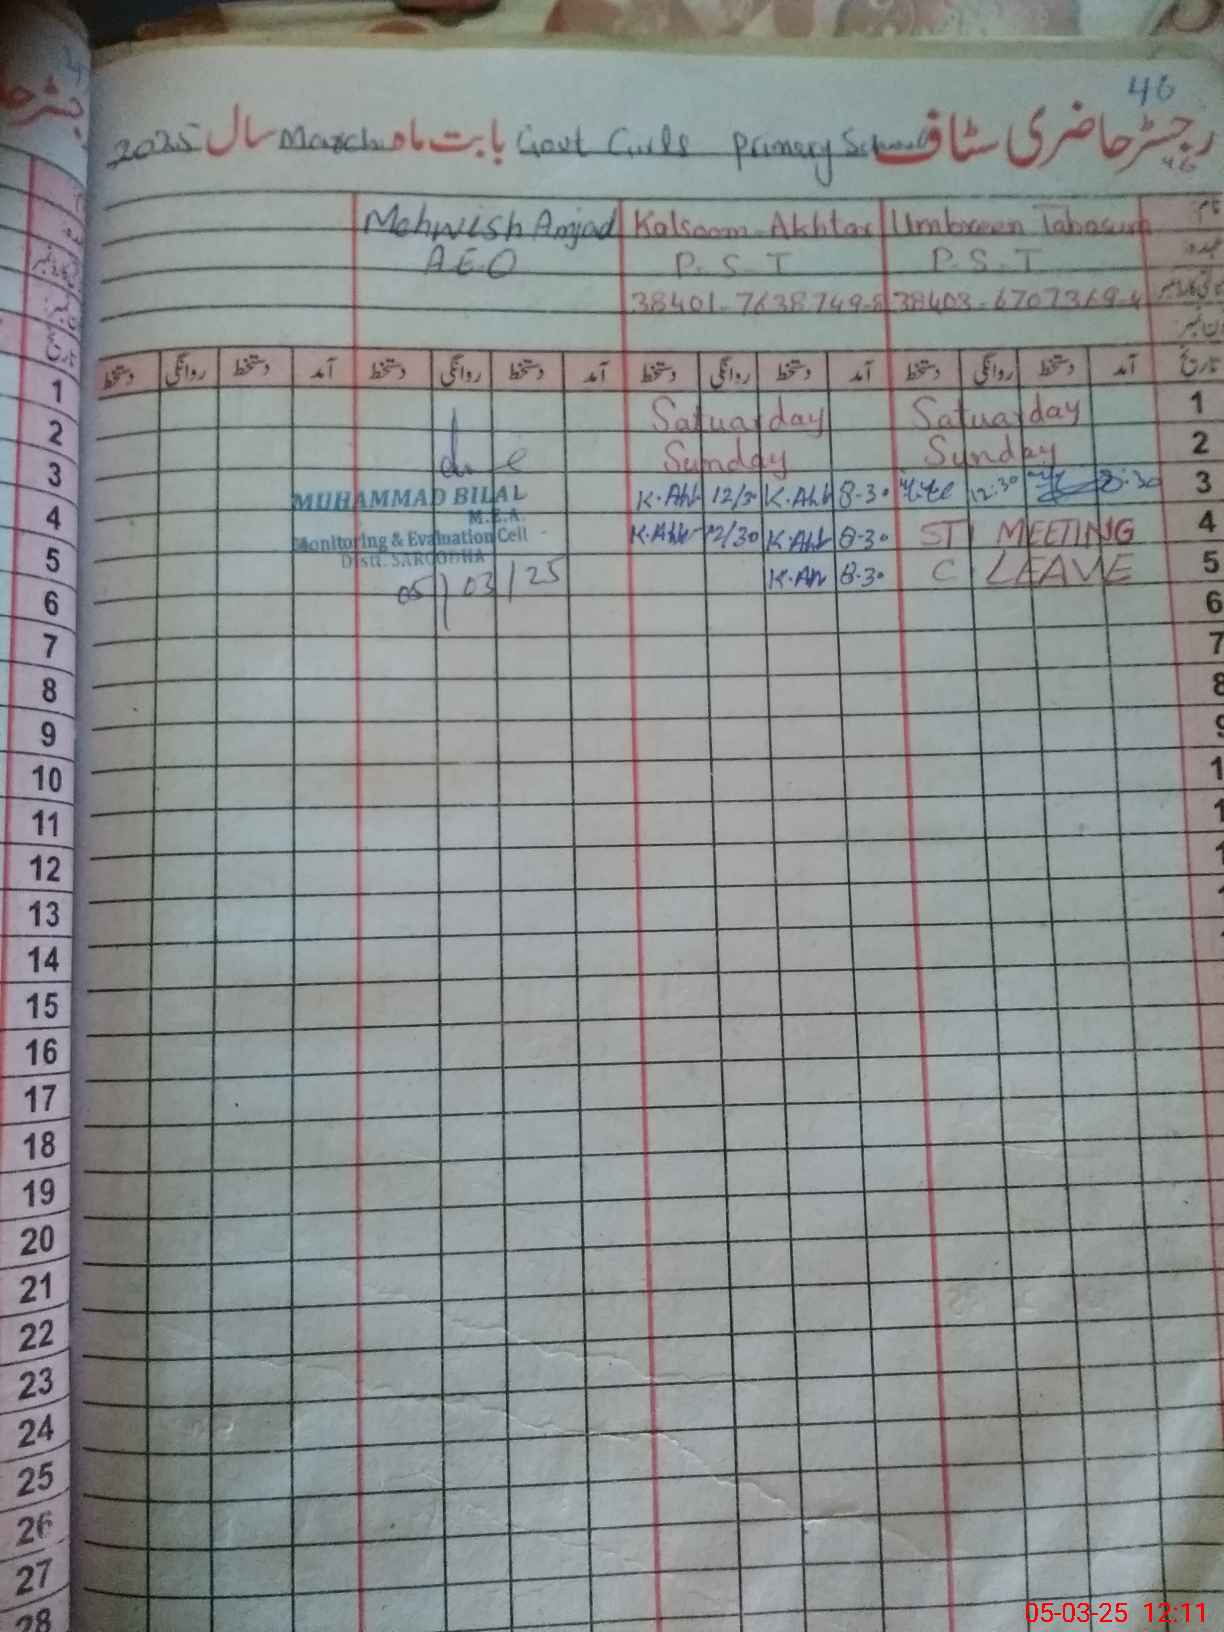 46
رجسٹر حاضری سٹاف Govt Girls Primary School بابت ماہ March سال 2025
46
نام Umbreen Tabasum Kalsoom Akhtar Mehwish Amjad
عہدہ P.S.T P.S.T A.E.O
38401-7638749-8
تاریخ آمد دستخط روانگی دستخط آمد دستخط روانگی دستخط آمد دستخط روانگی دستخط آمد دستخط روانگی دستخط
1 Satuarday Satuarday 1
2 Sunday Sunday 2
3 8.30 12:30 8-30 K.Akh 12/30 K.Akh 3
MUHAMMAD BILAL
M.E.A.
4 ST MEETING 8-30 K.Akh 12/30 K.Akh 4
Monitoring & Evaluation Cell
Distt. SARGODHA
5 C LEAVE 8-30 5
05/03/25
6 6
7 7
8 8
9 9
10
11
12
13
14
15
16
17
18
19
20
21
22
23
24
25
26
27
28
05-03-25 12:11